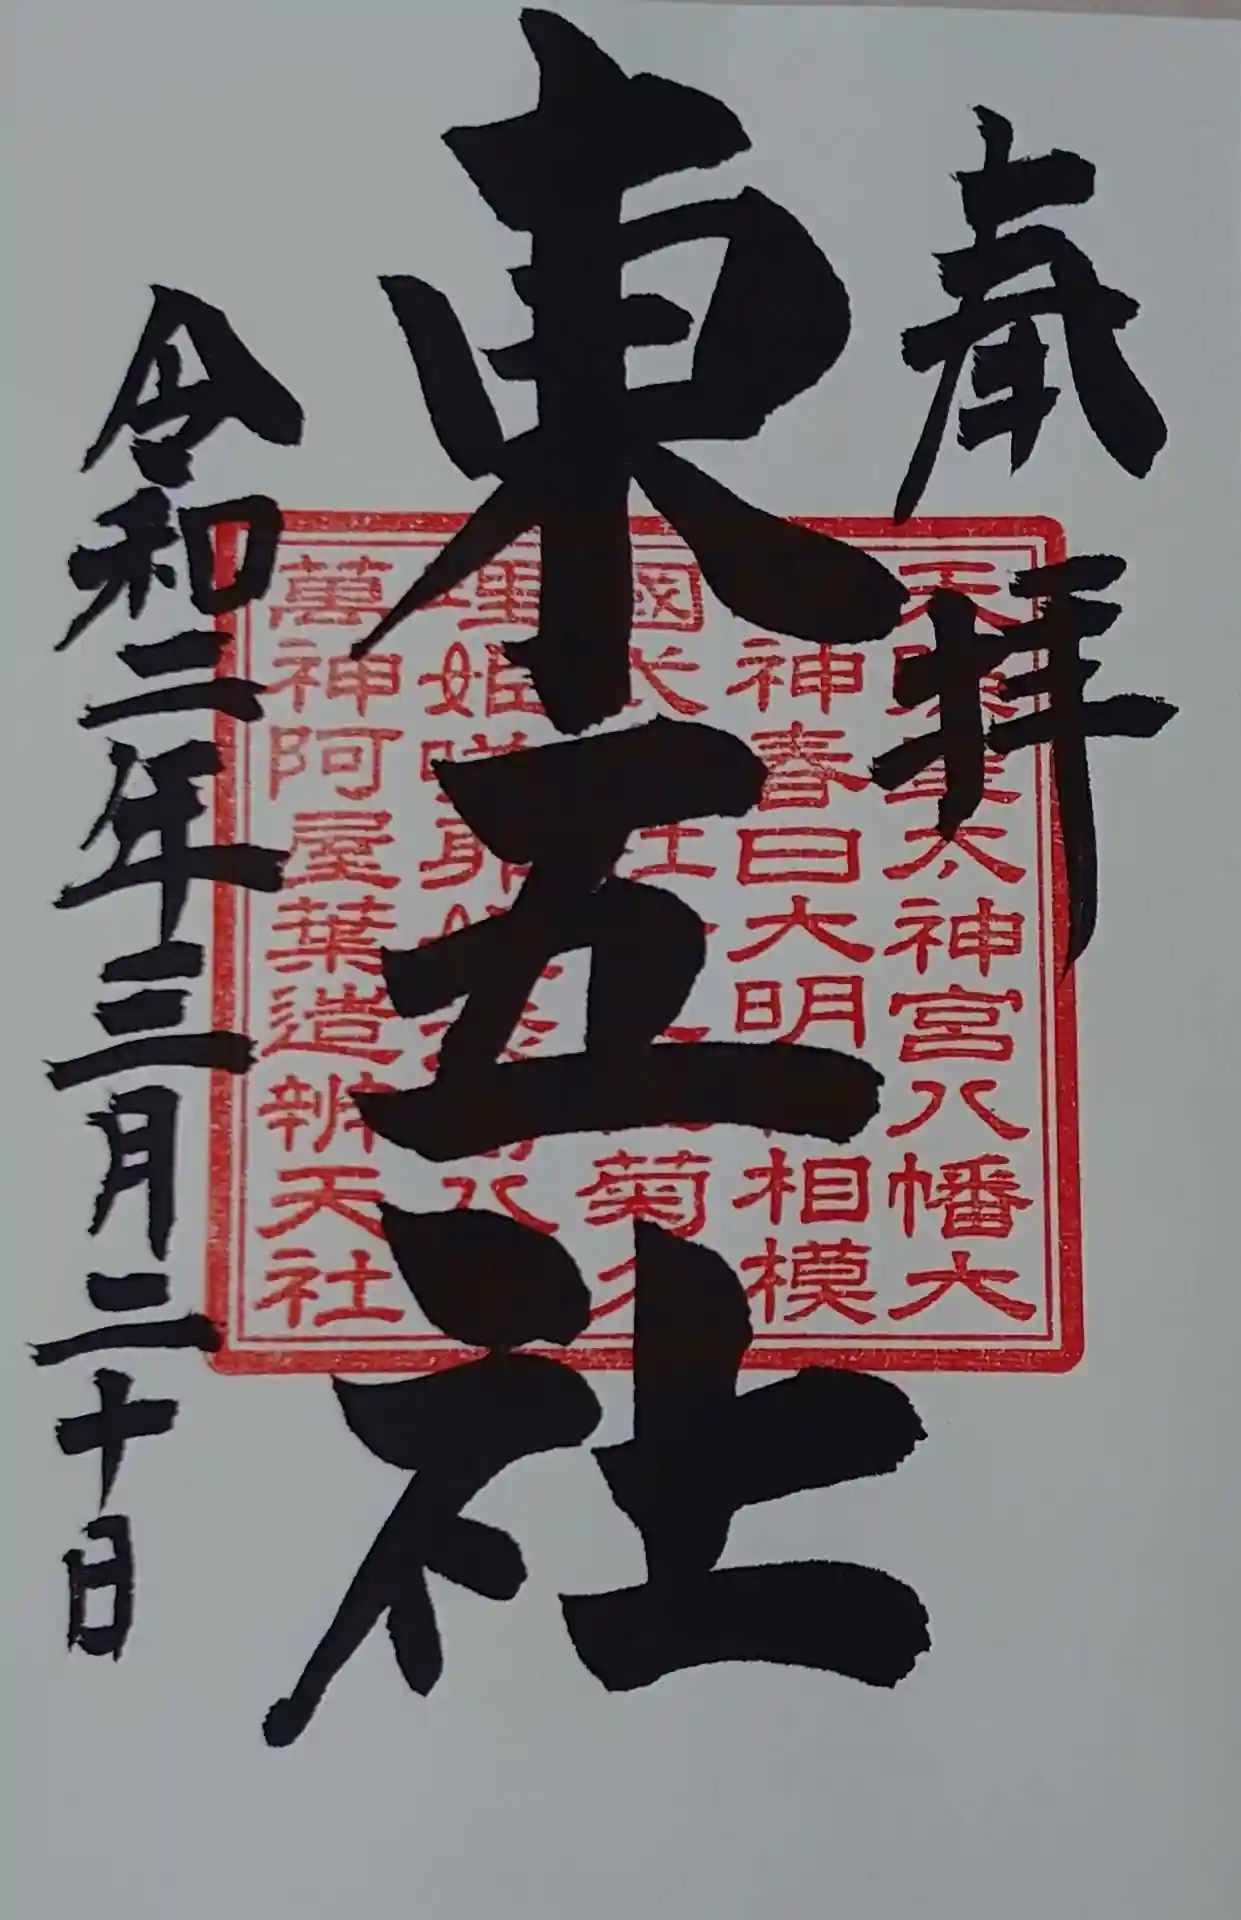 奉拝
東五社
令和二年三月二十日
天照皇太神宮八幡大
神春日大明 相模
國 社 菊
理姫 八
萬神阿屋葉造辨天社